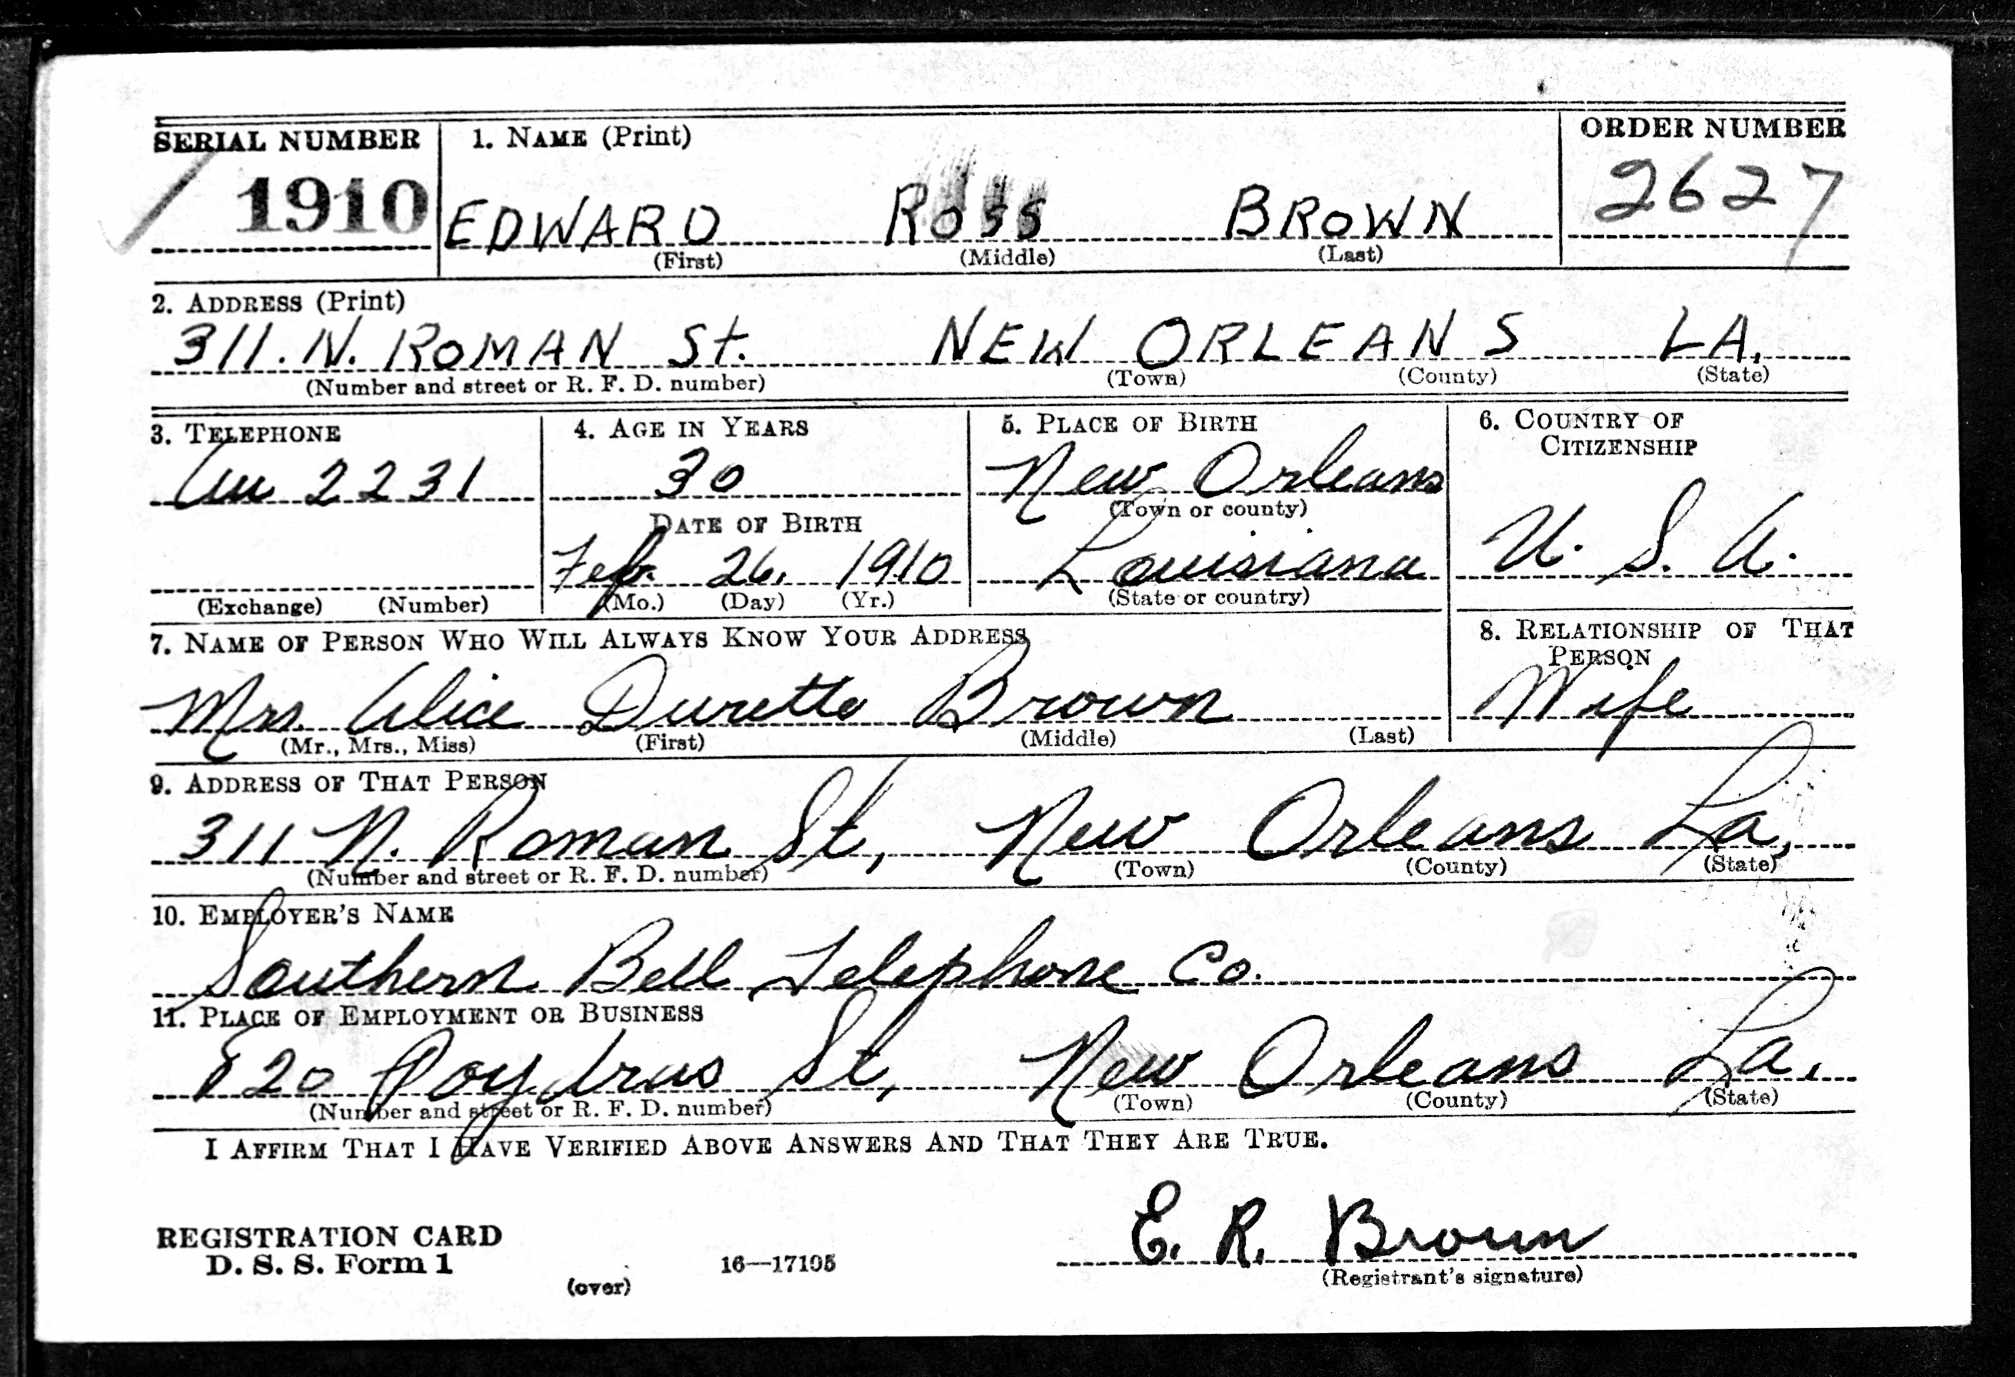 SERIAL NUMBER 1. NAME (Print) ORDER NUMBER
1910 EDWARD ROSS BROWN 2627
(First) (Middle) (Last)
2. ADDRESS (Print)
311. N. ROMAN St. NEW ORLEANS LA.
(Number and street or R. F. D. number) (Town) (County) (State)
3. TELEPHONE 4. AGE IN YEARS 5. PLACE OF BIRTH 6. COUNTRY OF
CITIZENSHIP
2231 30 New Orleans
DATE OF BIRTH (Town or county)
Feb. 26, 1910 Louisiana U. S. A.
(Exchange) (Number) (Mo.) (Day) (Yr.) (State or country)
7. NAME OF PERSON WHO WILL ALWAYS KNOW YOUR ADDRESS 8. RELATIONSHIP OF THAT
PERSON
Mrs. Alice Durette Brown Wife
(Mr., Mrs., Miss) (First) (Middle) (Last)
9. ADDRESS OF THAT PERSON
311 N. Roman St, New Orleans La,
(Number and street or R. F. D. number) (Town) (County) (State)
10. EMPLOYER'S NAME
Southern Bell Telephone Co.
11. PLACE OF EMPLOYMENT OR BUSINESS
820 Poydras St, New Orleans La,
(Number and street or R. F. D. number) (Town) (County) (State)
I AFFIRM THAT I HAVE VERIFIED ABOVE ANSWERS AND THAT THEY ARE TRUE.
E. R. Brown
REGISTRATION CARD
D. S. S. Form 1 16—17105 (Registrant's signature)
(over)